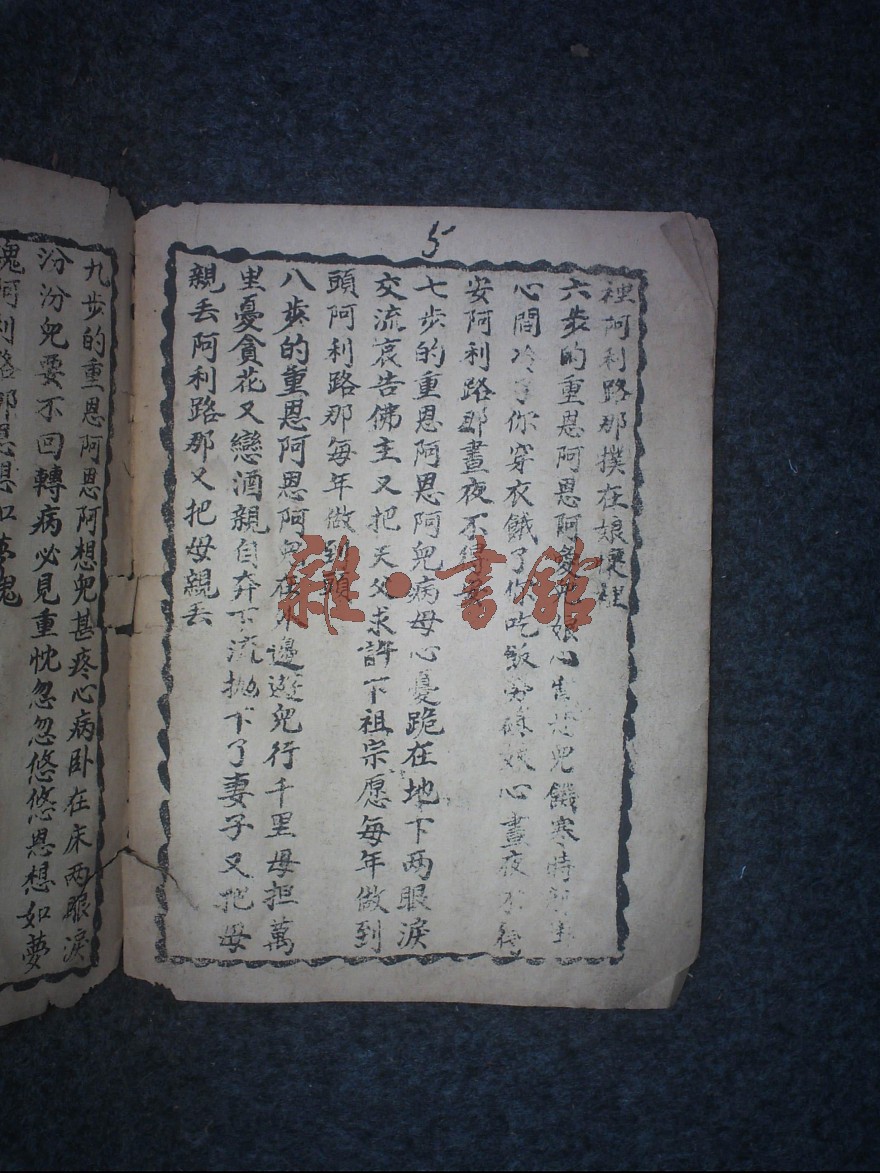 5
裡阿利路那撲在娘懷裡
六步的重恩阿恩阿兒娘心兒饑寒時
心間冷了你穿衣餓了你吃飯娘心晝夜不得
安阿利路那晝夜不得安
七步的重恩阿恩阿兒病母心憂跪在地下两眼淚
交流哀告佛主又把天父求許下祖宗愿每年做到
頭阿利路那每年做到頭
八步的重恩阿恩阿兒在外邊遊兒行千里母担萬
里憂貪花又戀酒親自奔下流拋下了妻子又把母
親丢阿利路那又把母親丢
九步的重恩阿恩阿想兒甚疼心病卧在床两眼淚
汾汾兒要不回轉病必見重忱忽忽悠悠恩想如夢
魂阿利路那恩想如夢魂
雜·書館